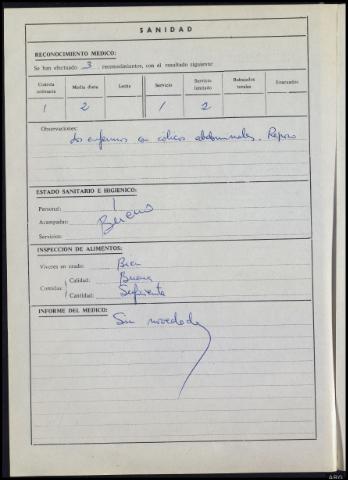 SANIDAD
RECONOCIMIENTO MEDICO:
Se han efectuado 3 reconocimientos, con el resultado siguiente:
Comida ordinaria Media dieta Leche Servicio Servicio limitado Rebajados totales Evacuados
1 2 1 2
Observaciones:
Dos enfermos con cólicos abdominales. Reposo
ESTADO SANITARIO E HIGIENICO:
Personal:
Acampadas: Bueno
Servicios:
INSPECCION DE ALIMENTOS:
Víveres en crudo: Bien
Comidas: Calidad: Buena
Cantidad: Suficiente
INFORME DEL MEDICO: Sin novedad